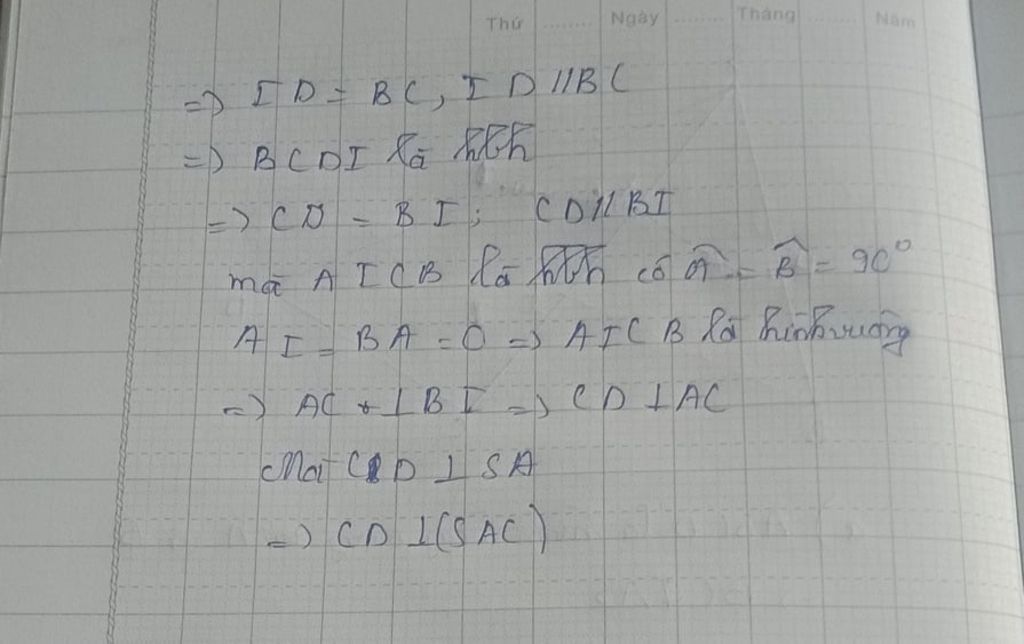 Thứ ........ Ngày ........ Tháng ........ Năm
=> ID = BC, ID // BC
=> BCDI là hbh
=> CD = BI; CD // BI
mà AICB là hbh có Â = B̂ = 90°
AI = BA = a => AICB là hình vuông
=> AC ⊥ BI => CD ⊥ AC
Mà CD ⊥ SA
=> CD ⊥ (SAC)